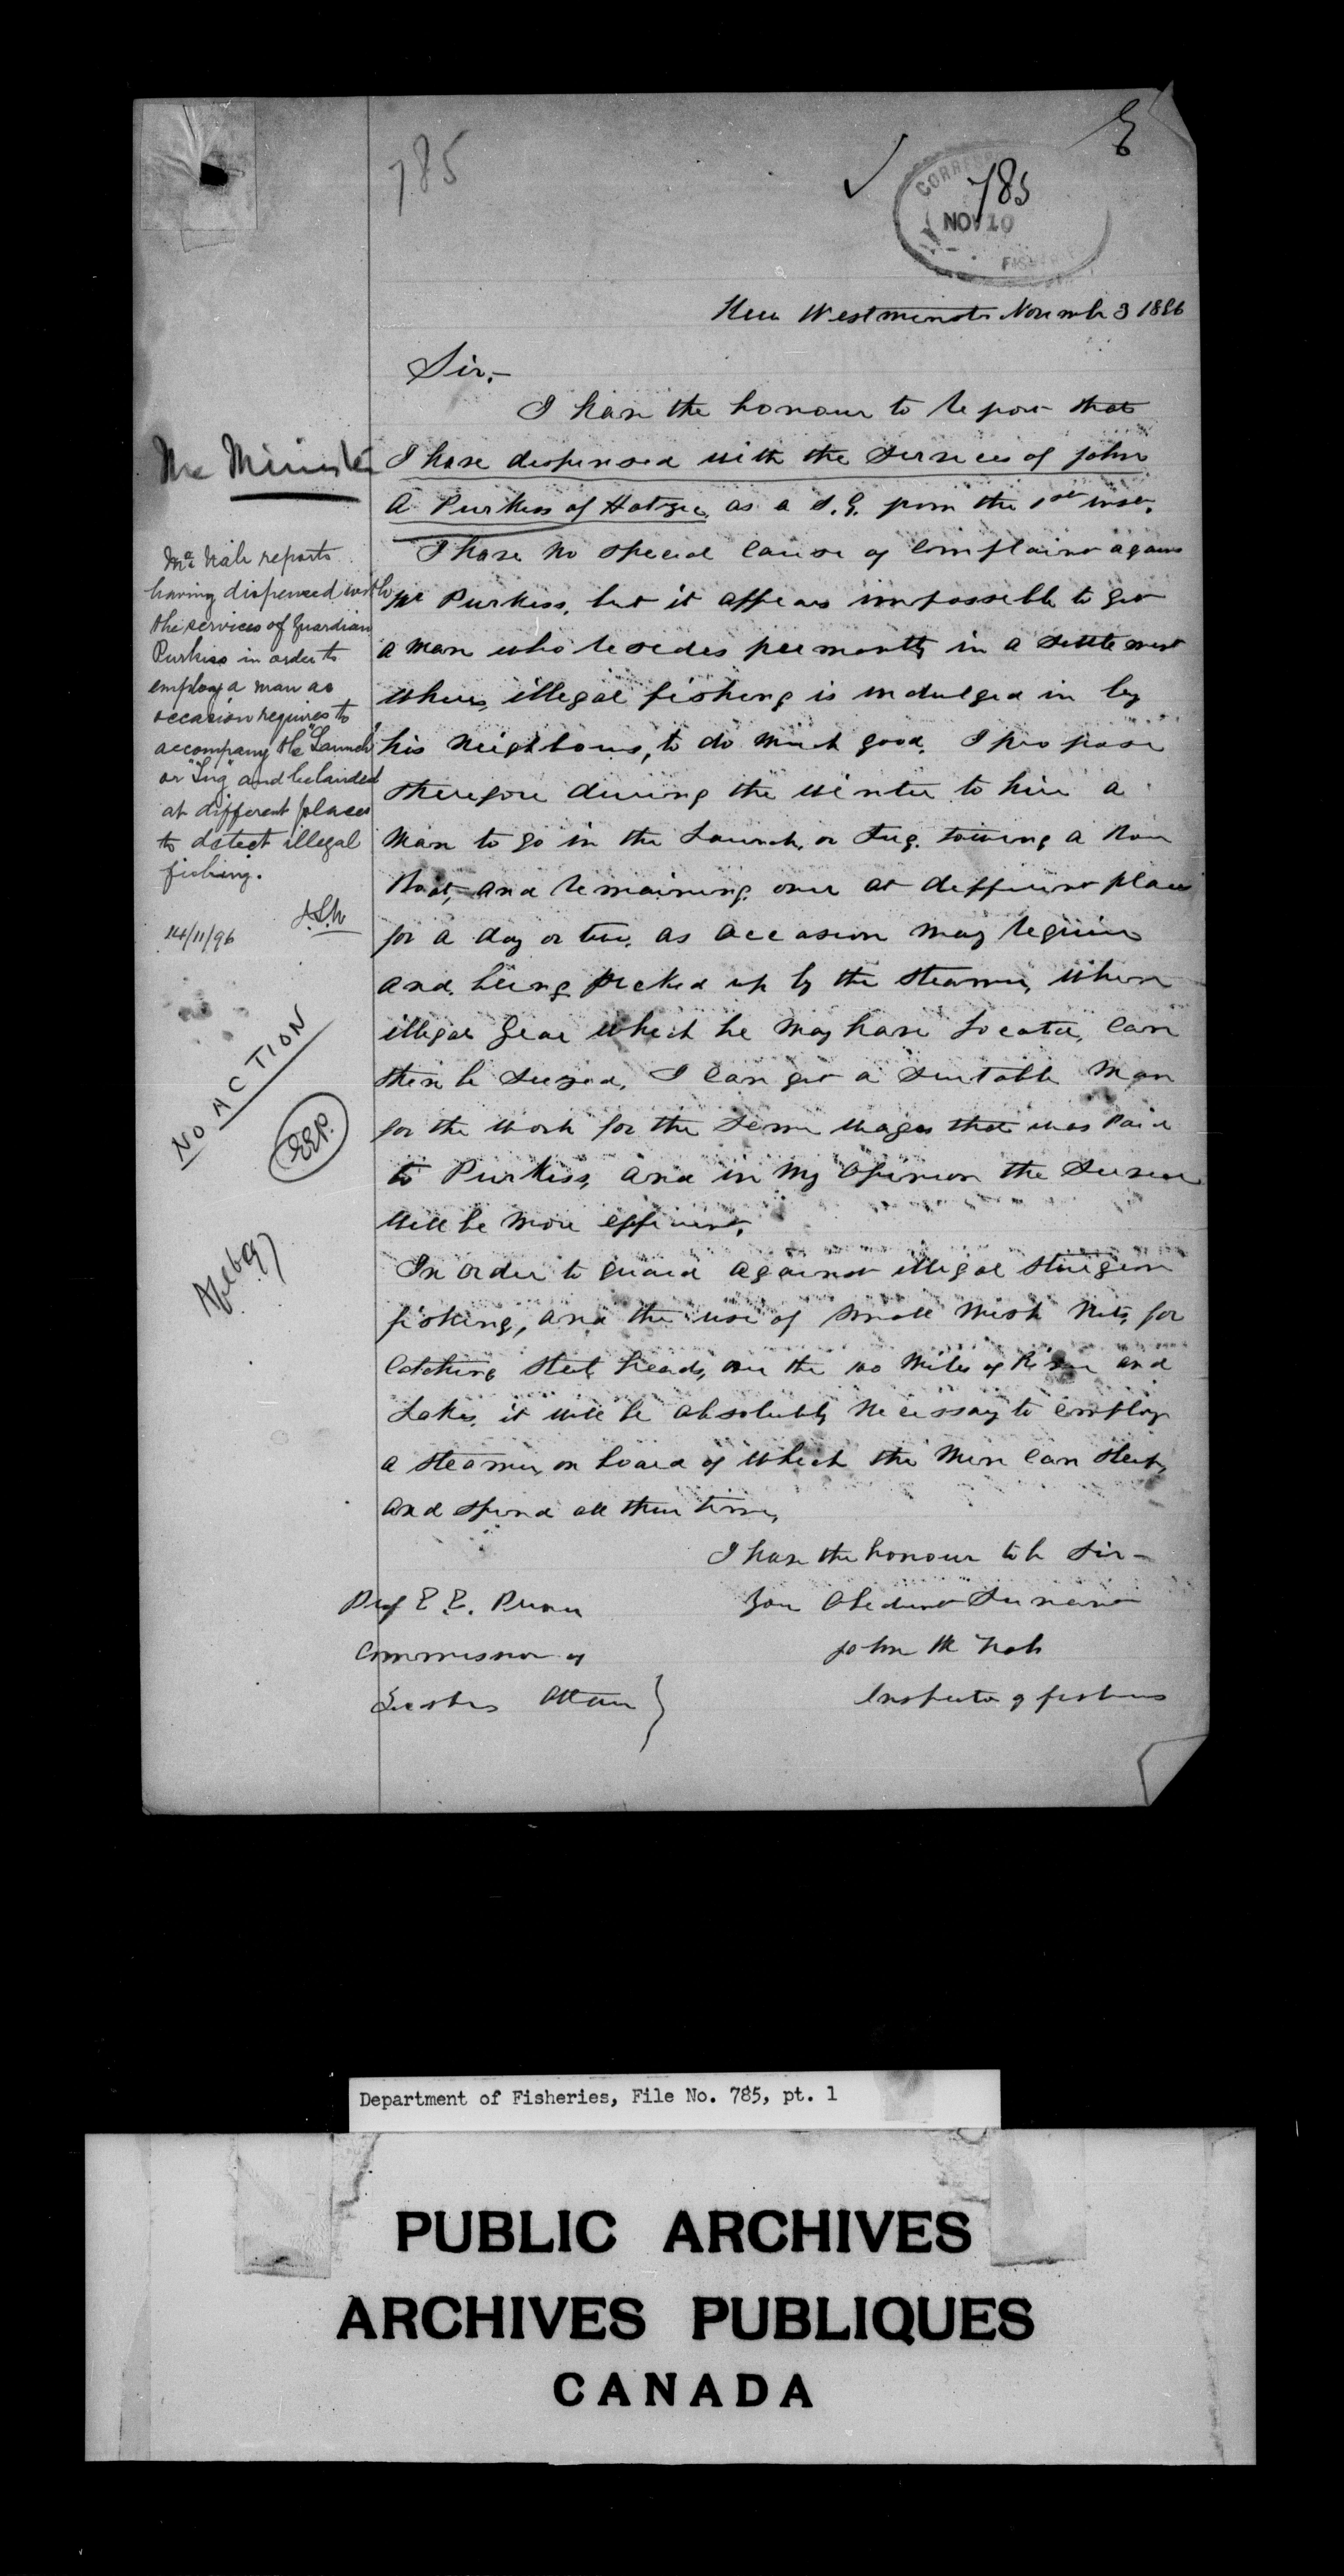 785
E
CORRES
785
NOV 10
FISHER
New Westminster November 3 1896
Sir,-
I have the honour to report that
I have dispensed with the services of John
A Purkiss of Hatzic, as a F.G. from the 1st inst.
I have no special cause of complaint against
Mr Purkiss, but it appears impossible to get
a man who resides permantly in a settlement
where illegal fishing is indulged in by
his neighbours, to do much good. I propose
therefore during the winter to hire a
man to go in the Launch, or Tug, towing a Row
Boat, and remaining over at different places
for a day or two, as occasion may require
and being picked up by the steamer, when
illegal gear which he may have located, can
then be seized. I can get a suitable man
for the work for the same wages that was paid
to Purkiss, and in my opinion the service
will be more efficient.
In order to guard against illegal sturgeon
fishing, and the use of small mesh nets, for
catching steel heads, over the 100 miles of River and
Lakes, it will be absolutely necessary to employ
a steamer, on board of which the men can sleep,
and spend all their time,
I have the honour to be Sir-
Your Obedient Servant
John McNab
Inspector of fisheries
Prof E. E. Prince
Commissioner of
Fisheries Ottawa }
The Minister
Mr McNab reports
having dispensed with
the services of Guardian
Purkiss in order to
employ a man as
occasion requires to
accompany the "Launch"
or "Tug" and be landed
at different places
to detect illegal
fishing.
14/11/96
NO ACTION
EEP.
Department of Fisheries, File No. 785, pt. 1
PUBLIC ARCHIVES
ARCHIVES PUBLIQUES
CANADA